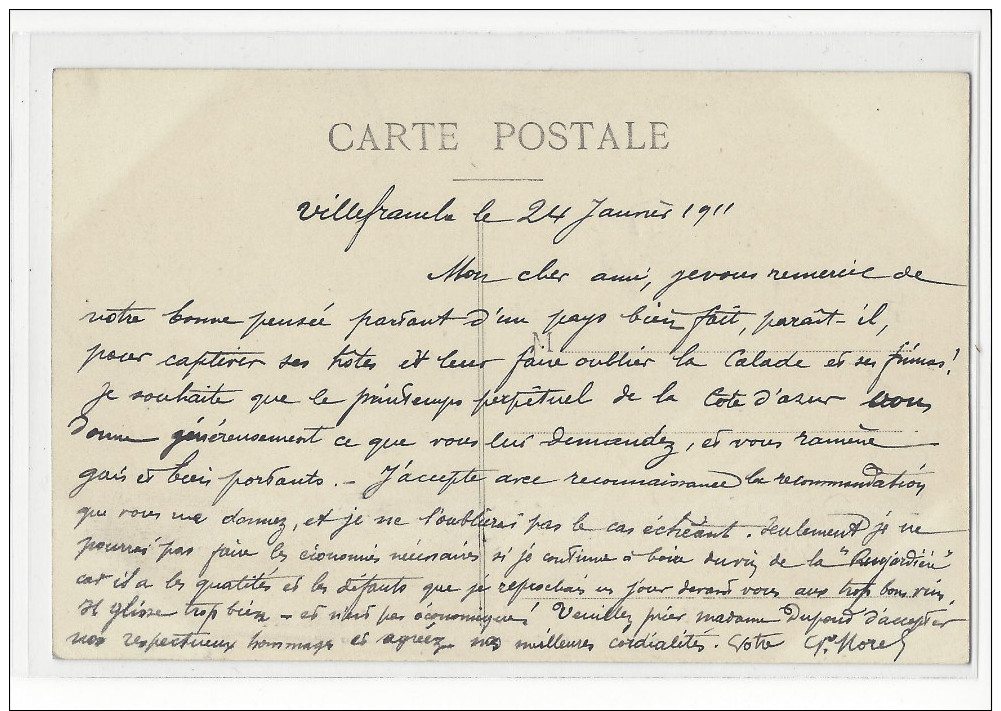 CARTE POSTALE
Villefranche le 24 Janvier 1911
Mon cher ami, je vous remercie de
votre bonne pensée partant d'un pays bien fait, paraît-il,
M
pour captiver ses hôtes et leur faire oublier la Calade et ses frimas!
Je souhaite que le printemps perpétuel de la Cote d'azur vous
donne généreusement ce que vous lui demandez, et vous ramène
gais et bien portants. - J'accepte avec reconnaissance la recommandation
que vous me donnez, et je ne l'oublierai pas le cas échéant. Seulement je ne
pourrai pas faire les économies nécessaires si je continue à boire du vin de la
car il a les qualités et les défauts que je reprochais un jour devant vous aux trop bons vins,
Il glisse trop bien - et n'est pas économique! Veuillez prier madame Dupond d'accepter
nos respectueux hommages et agréez nos meilleures cordialités. Votre Morel